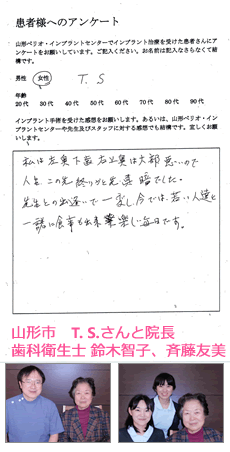 患者様へのアンケート
山形ペリオ・インプラントセンターでインプラント治療を受けた患者さんにア
ンケートをお願いしています。ご記入ください。お名前は記入なさらなくて結
構です。
男性 女性 T. S
年齢
20代 30代 40代 50代 60代 70代 80代 90代
インプラント手術を受けた感想をお願いします。あるいは、山形ペリオ・イン
プラントセンターや先生及びスタッフに対する感想でも結構です。宜しくお願
いします。
私は左奥下歯 右上奥は大部悪いので
人生この先終りかと真暗でした。
先生との出逢いで一変し今では、若い人達と
一諸に食事も出来楽しい毎日です。
山形市 T. S.さんと院長
歯科衛生士 鈴木智子、斉藤友美